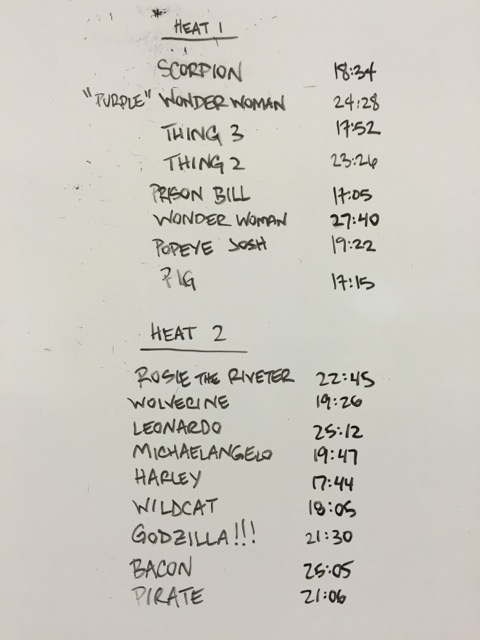 HEAT 1
SCORPION 18:34
"PURPLE" WONDER WOMAN 24:28
THING 3 17:52
THING 2 23:26
PRISON BILL 17:05
WONDER WOMAN 27:40
POPEYE JOSH 19:22
PIG 17:15
HEAT 2
ROSIE THE RIVETER 22:45
WOLVERINE 19:26
LEONARDO 25:12
MICHAELANGELO 19:47
HARLEY 17:44
WILDCAT 18:05
GODZILLA!!! 21:30
BACON 25:05
PIRATE 21:06